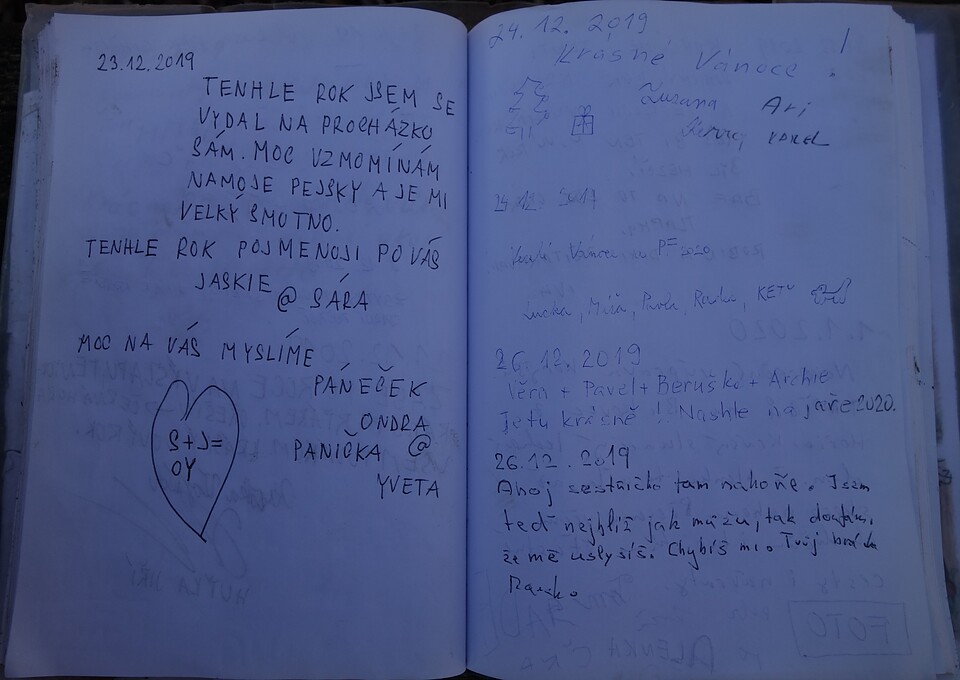 23.12.2019
TENHLE ROK JSEM SE
VYDAL NA PROCHÁZKU
SÁM. MOC VZMOMÍNÁM
NAMOJE PEJSKY A JE MI
VELKÝ SMUTNO.
TENHLE ROK POJMENUJI PO VÁS
JASKIE @ SÁRA
MOC NA VÁS MYSLÍME
PÁNEČEK
ONDRA
PANIČKA @
YVETA
S+J=
OY
24.12.2019
Krásné Vánoce
Zuzana Ari
Karel
Veselé Vánoce a PF 2020
Lucka, Míša, Pavla, Radka, KETY
26.12.2019
Věra + Pavel + Beruška + Archie
je tu krásně! Nashle na jaře 2020.
26.12.2019
Ahoj sestřičko tam nahoře. Jsem
teď nejblíž jak můžu, tak doufám,
že mě uslyšíš. Chybíš mi. Tvůj
FOTO